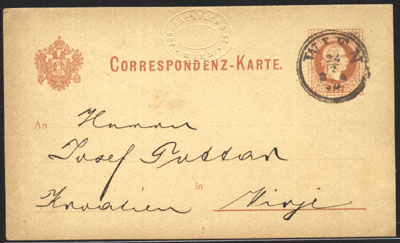 CORRESPONDENZ-KARTE.
WIEN
24
An Herrn
Josef Puttar
in
Kroatien Virje